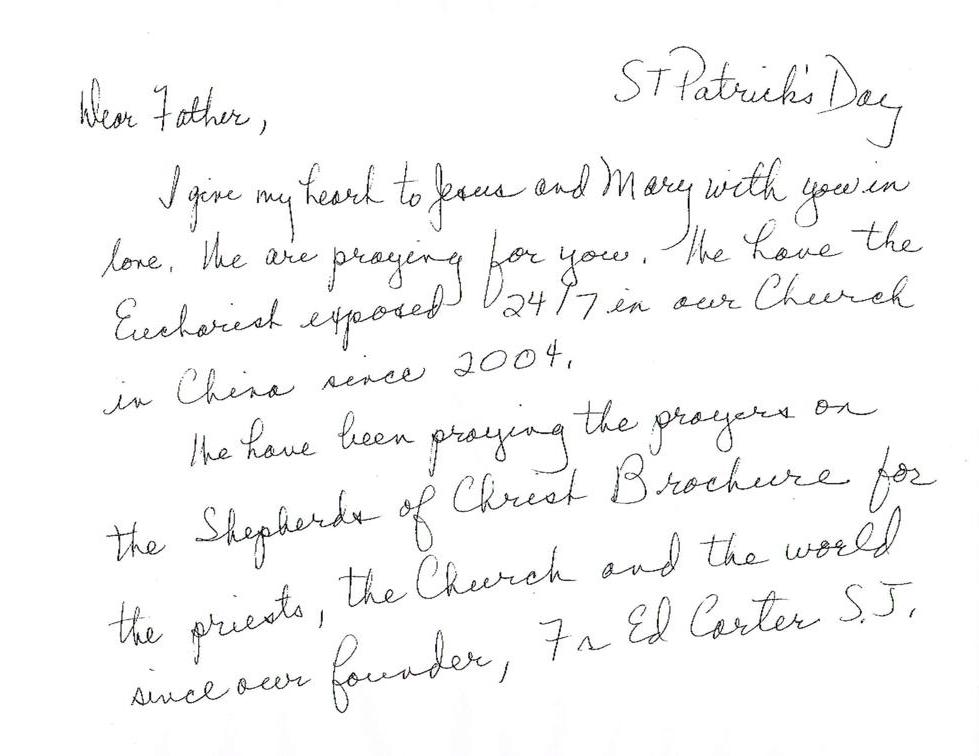 St Patrick's Day
Dear Father,
I give my heart to Jesus and Mary with you in
love. We are praying for you. We have the
Eucharist exposed 24/7 in our Church
in China since 2004.
We have been praying the prayers on
the Shepherds of Christ Brochure for
the priests, the Church and the world
since our founder, Fr Ed Carter S.J.